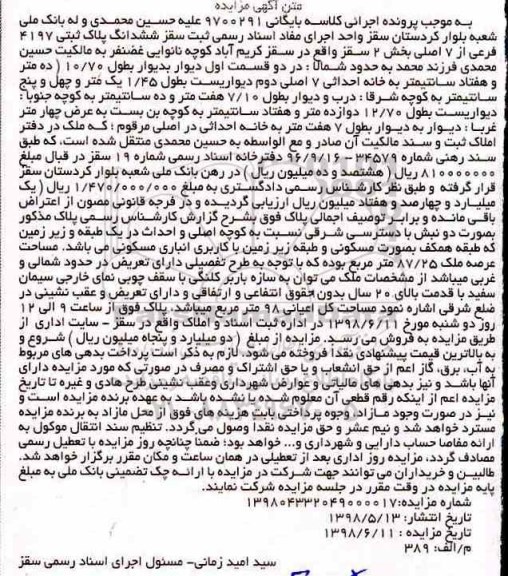 متن آگهی مزایده
به موجب پرونده اجرائی کلاسه بایگانی ۹۷۰۰۲۹۱ علیه حسین محمدی و له بانک ملی
شعبه بلوار کردستان سقز واحد اجرای مفاد اسناد رسمی ثبت سقز ششدانگ پلاک ثبتی ۴۱۹۷
فرعی از ۷ اصلی بخش ۲ سقز واقع در سقز کریم آباد کوچه نانوایی غضنفر به مالکیت حسین
محمدی فرزند محمد به حدود شمالا : در دو قسمت اول دیوار بدیوار بطول ۱۰/۷۰ ( ده متر
و هفتاد سانتیمتر به خانه احداثی ۷ اصلی دوم دیواریست بطول ۱/۴۵ یک متر و چهل و پنج
سانتیمتر به کوچه شرقا : درب و دیوار بطول ۷/۱۰ هفت متر و ده سانتیمتر به کوچه جنوبا :
دیواریست بطول ۱۲/۷۰ دوازده متر و هفتاد سانتیمتر به کوچه بن بست به عرض چهار متر
غربا : دیوار به دیوار بطول ۷ هفت متر به خانه احداثی در اصلی مرقوم : که ملک در دفتر
املاک ثبت و سند مالکیت آن صادر و مع الواسطه به حسین محمدی منتقل شده است، که طبق
سند رهنی شماره ۳۴۵۷۹ – ۹۶/۷/۱۶ دفترخانه اسناد رسمی شماره ۱۹ سقز در قبال مبلغ
۸۱۰۰۰۰۰۰۰ ریال ( هشتصد و ده میلیون ریال ) در رهن بانک ملی شعبه بلوار کردستان سقز
قرار گرفته و طبق نظر کارشناس رسمی دادگستری به مبلغ ۱/۴۷۰/۰۰۰/۰۰۰ ریال ( یک
میلیارد و چهارصد و هفتاد میلیون ریال ارزیابی گردیده و در فرجه قانونی مصون از اعتراض
باقی مانده و برابر توصیف اجمالی پلاک فوق بشرح گزارش کارشناس رسمی پلاک مذکور
بصورت دو نبش با دسترسی شرقی نسبت به کوچه اصلی و احداث در یک طبقه و زیر زمین
که طبقه همکف بصورت مسکونی و طبقه زیر زمین با کاربری انباری مسکونی می باشد. مساحت
عرصه ملک ۸۷/۲۵ متر مربع بوده که با توجه به طرح تفصیلی دارای تعریض در حدود شمالی و
غربی میباشد از مشخصات ملک می توان به سازه باربر کلنگی با سقف چوبی نمای خارجی سیمان
سفید با قدمت بالای ۲۰ سال بدون حقوق انتفاعی و ارتفاقی و دارای تعریض و عقب نشینی در
ضلع شرقی اشاره نمود مساحت کل اعیانی ۹۸ متر مربع میباشد. پلاک فوق از ساعت ۹ الی ۱۲
روز دو شنبه مورخ ۱۳۹۸/۶/۱۱ در اداره ثبت اسناد و املاک واقع در سقز - سایت اداری از
طریق مزایده به فروش می رسد. مزایده از مبلغ ( دو میلیارد و پنجاه میلیون ریال ) شروع و
به بالاترین قیمت پیشنهادی نقدا فروخته می شود. لازم به ذکر است پرداخت بدهی های مربوط
به آب، برق، گاز اعم از حق انشعاب و یا حق اشتراک و مصرف در صورتی که مورد مزایده دارای
آنها باشد و نیز بدهی های مالیاتی و عوارض شهرداری وعقب نشینی طرح هادی و غیره تا تاریخ
مزایده اعم از اینکه رقم قطعی آن معلوم شده یا نشده باشد به عهده برنده مزایده است و
نیز در صورت وجود مازاد، وجوه پرداختی بابت هزینه های فوق از محل مازاد به برنده مزایده
مسترد خواهد شد و نیم عشر و حق مزایده نقدا وصول می گردد. تنظیم سند انتقال موکول به
ارائه مفاصا حساب دارایی و شهرداری و... خواهد بود؛ ضمنا چنانچه روز مزایده با تعطیل رسمی
مصادف گردد، مزایده روز اداری بعد از تعطیلی در همان ساعت و مکان مقرر برگزار خواهد شد.
طالبین و خریداران می توانند جهت شرکت در مزایده با ارائه چک تضمینی بانک ملی به مبلغ
پایه مزایده در وقت مقرر در جلسه مزایده شرکت نمایند.
شماره مزایده:۱۳۹۸۰۴۳۳۲۰۴۹۰۰۰۰۱۷
تاریخ انتشار: ۱۳۹۸/۵/۱۳
تاریخ مزایده : ۱۳۹۸/۶/۱۱
م/الف: ۳۸۹
سید امید زمانی- مسئول اجرای اسناد رسمی سقز